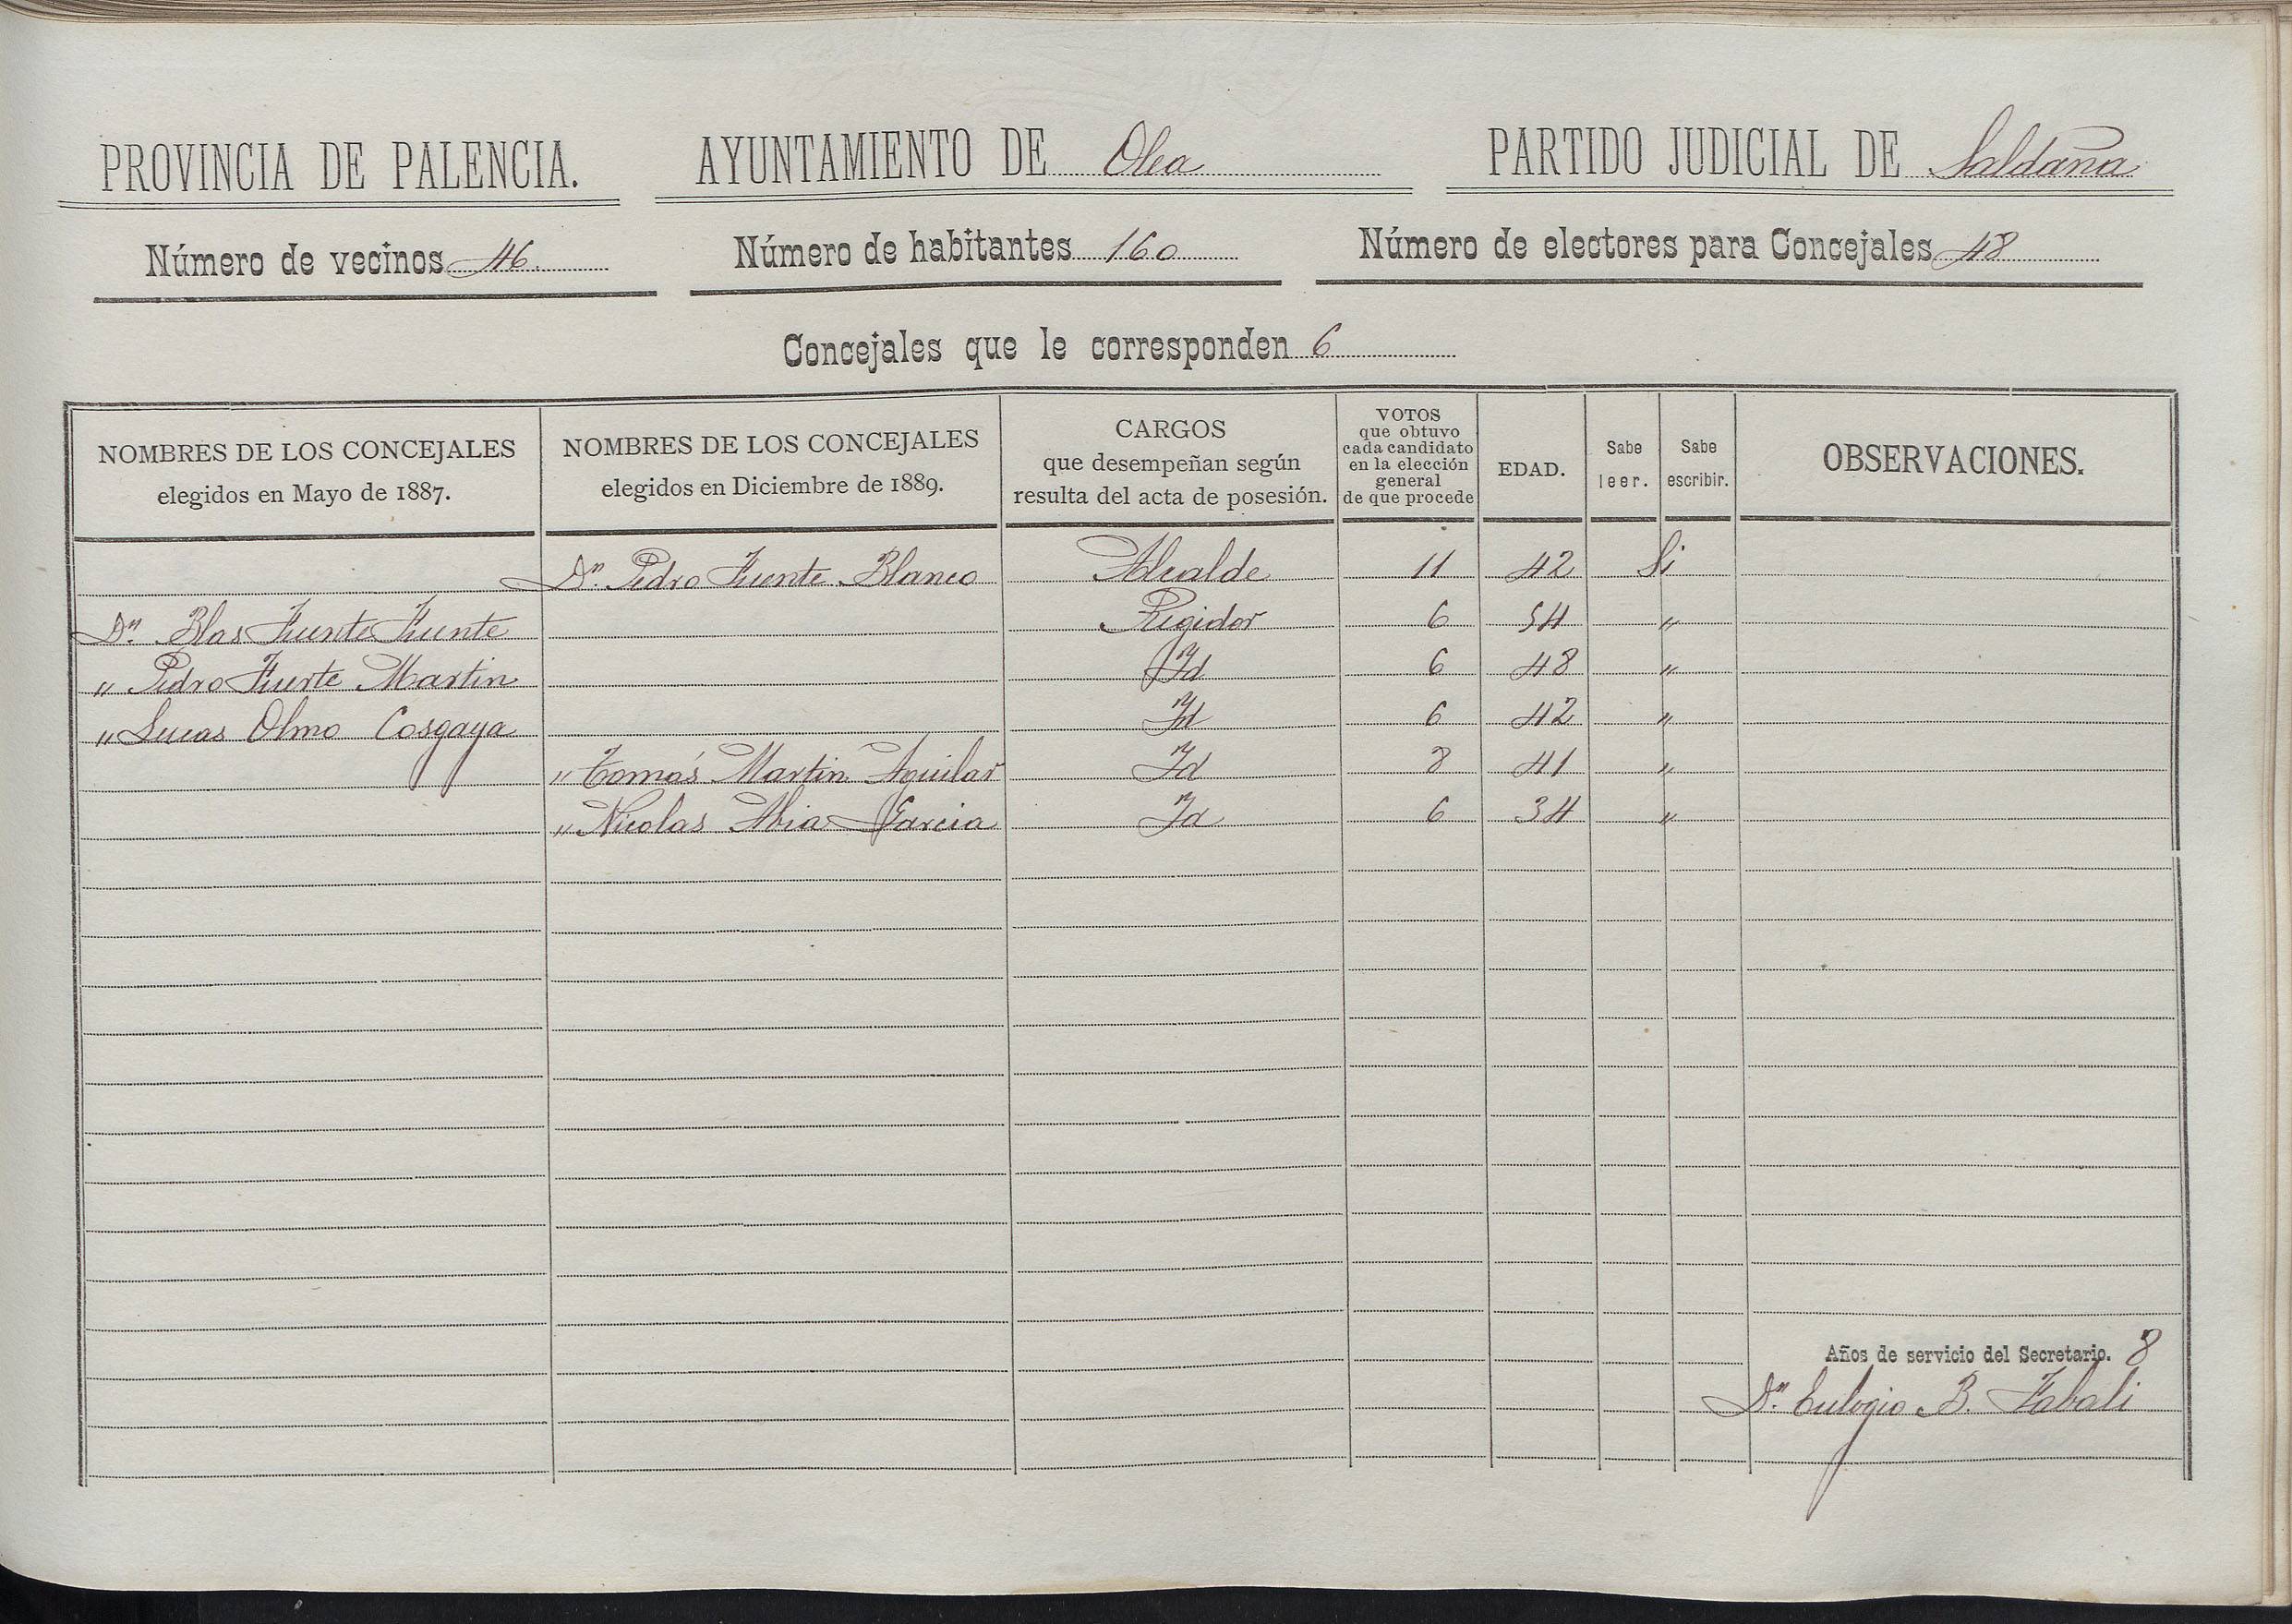 PROVINCIA DE PALENCIA. AYUNTAMIENTO DE Olea PARTIDO JUDICIAL DE Saldaña
Número de vecinos 46. Número de habitantes 160 Número de electores para Concejales 48
Concejales que le corresponden 6
NOMBRES DE LOS CONCEJALES elegidos en Mayo de 1887. NOMBRES DE LOS CONCEJALES elegidos en Diciembre de 1889. CARGOS que desempeñan según resulta del acta de posesión. VOTOS que obtuvo cada candidato en la elección general de que procede EDAD. Sabe leer. Sabe escribir. OBSERVACIONES.
Dn. Pedro Fuente Blanco Alcalde 11 42 Si
Dn. Blas Fuente Fuente Regidor 6 54 "
" Pedro Fuerte Martin Id 6 48 "
" Lucas Olmo Cosgaya Id 6 42 "
" Tomás Martin Aguilar Id 8 41 "
" Nicolas Abia Garcia Id 6 34 "
Años de servicio del Secretario. 8
Dn. Eulogio B. Fabali